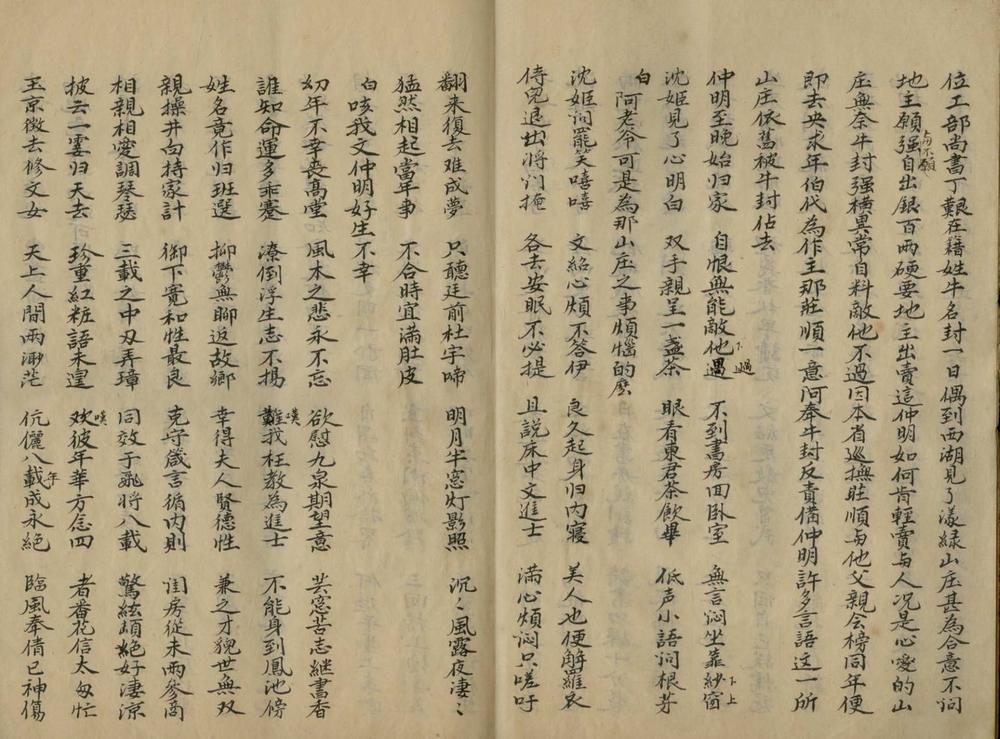 位工部尚書丁艱在籍姓牛名封一日偶到西湖見了漾緑山庄甚為合意不问
地主願與不願强自出銀百兩硬要地主出賣這仲明如何肯輕賣与人况是心愛的山
庄無奈牛封强横異常自料敵他不過因本省巡撫莊順与他父親会榜同年便
即去央求年伯代為作主那莊順一意阿奉牛封反責備仲明許多言語这一所
山庄依舊被牛封佔去
仲明至晚始归家 自恨無能敵他過 不到書房回卧室 無言闷坐靠紗窗
沈姬見了心明白 双手親呈一盏茶 眼看東君茶飲畢 低声小語问根芽
白 阿老爷可是為那山庄之事煩惱的麽
沈姬问罷笑嘻嘻 文紿心煩不答伊 良久起身归内寢 美人也便解羅衣
侍兒退出將门掩 各去安眠不必提 且説床中文進士 满心煩闷只嗟吁
翻来復去难成夢 只聽廷前杜宇啼 明月半窓灯影照 沉〻風露夜凄〻
猛然相起當年事 不合時宜满肚皮
白咳我文仲明好生不幸
幼年不幸喪髙堂 風木之悲永不忘 欲慰九泉期望意 芸窓苦志継書香
誰知命運多乖蹇 潦倒浮生志不揚 嘆我枉教為進士 不能身到鳳池傍
姓名竟作归班選 抑鬱無聊返故鄉 幸得夫人賢德性 兼之才貌世無双
親操井臼持家計 御下寛和性最良 克守箴言循内則 闺房從未兩參商
相親相愛調琴瑟 三載之中刄弄璋 同效于飛將八載 驚絃頓絶好淒凉
披云一霎归天去 珍重紅粧語未遑 嘆彼年華方念四 者番花信太匆忙
玉京徴去修文女 天上人間兩渺茫 伉儷八年成永絶 臨風奉倩已神傷